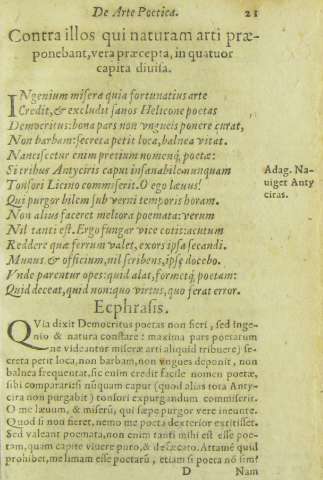 De Arte Poetica. 21
Contra illos qui naturam arti præ-
ponebant, vera præcepta, in quatuor
capita divisa.
INgenium misera quia fortunatius arte
Credit, & excludit sanos Helicone poetas
Democritus: bona pars non vngueis ponere curat,
Non barbam: secreta petit loca, balnea vitat.
Nanciscetur enim pretium nomenq; poetæ:
Si tribus Antyciris caput insanabile nunquam
Tonsori Licino commiserit. O ego læuus!
Qui purgor bilem sub verni temporis horam.
Non alius faceret meliora poemata: verum
Nil tanti est. Ergo fungar vice cotis: acutum
Reddere quæ ferrum valet, exors ipsa secandi.
Munus & officium, nil scribens, ipse docebo.
Vnde parentur opes: quid alat, formetq; poetam:
Quid deceat, quid non: quo virtus, quo ferat error.
Adag. Na-
uiget Anty
ciras.
Ecphrasis.
QVia dixit Democritus poetas non fieri, sed inge-
nio & natura constare: maxima pars poetarum
ne videantur miseræ arti aliquid tribuere) se
creta petit loca, non barbam, non vngues deponit, non
balnea frequentat, sic enim credit facile nomen poetæ,
sibi comparari: si nũquam caput (quod alias tota Anty-
cira non purgabit) tonsori expurgandum commiserit.
O me læuum, & miserũ, qui sæpe purgor vere ineunte.
Quod si non fieret, nemo me poeta dexterior extitisset.
Sed valeant poemata, non enim tanti mihi est esse poe-
tam, quam capite viuere puro, & defæcato. Attamẽ quid
prohibet, me limam esse poetarũ, etiam si poeta nõ sim?
D Nam